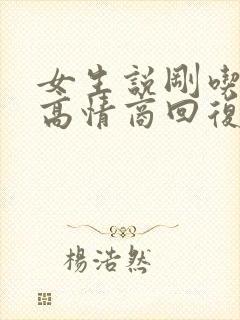 女生説剛喫
高情商回復
楊浩然